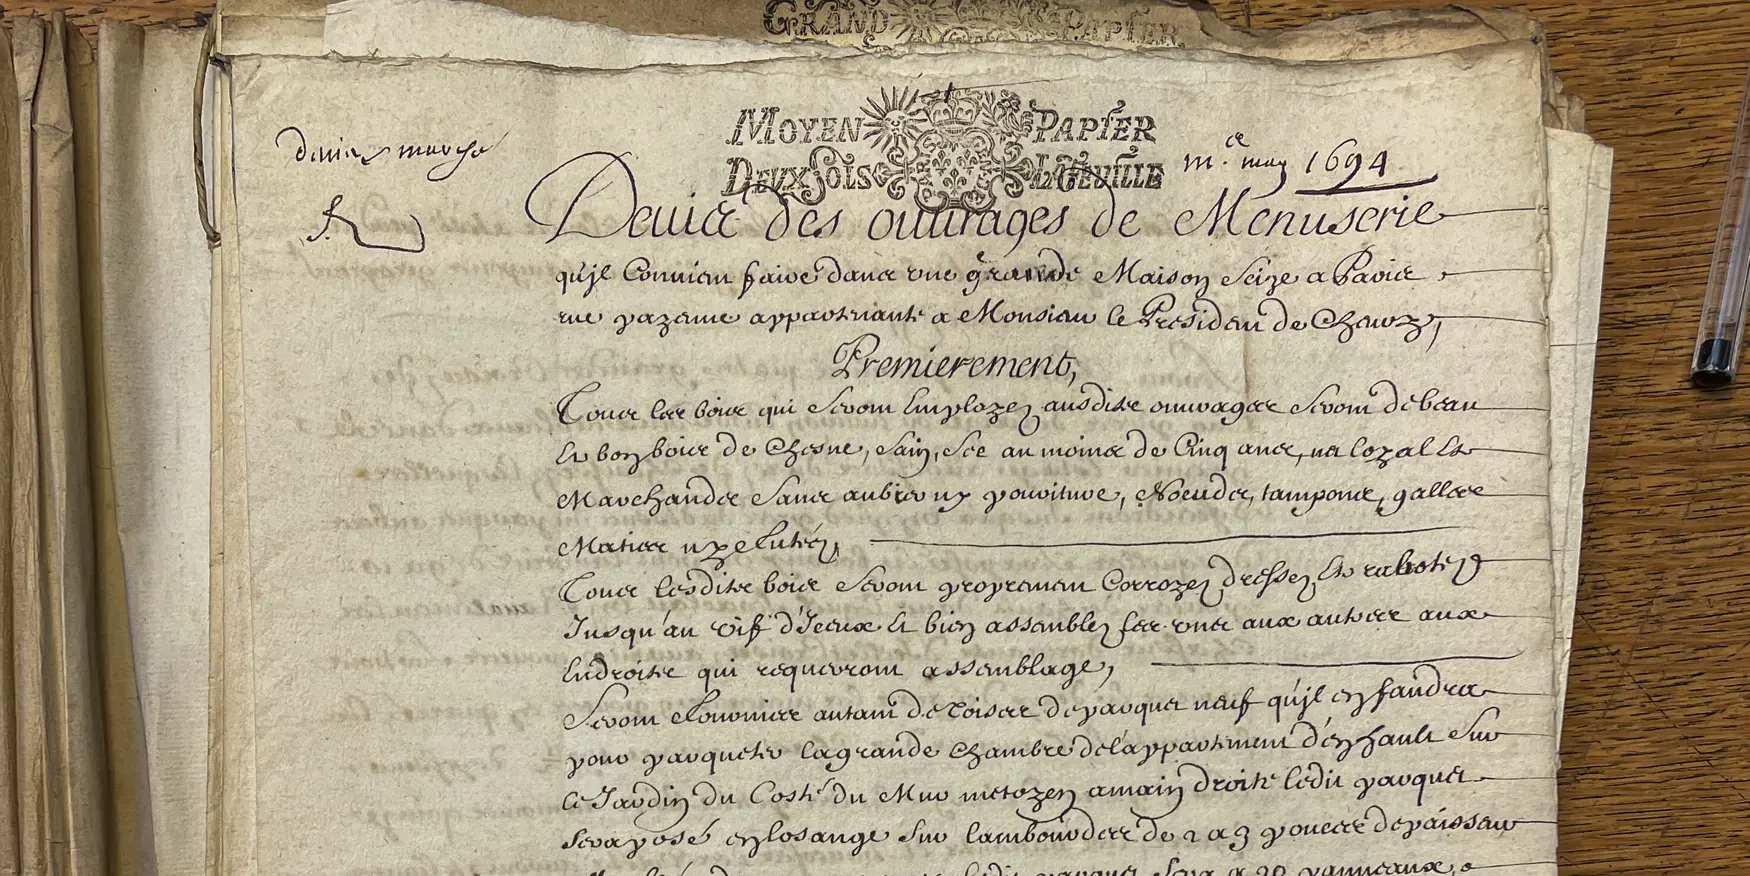 GRAND PAPIER
MOYEN PAPIER
DEUX SOLS LA FEUILLE
devis marché
m.e may 1694
Devis des ouurages de Menuserie
qu'jl Conuient faire dans une grande Maison Seize a Paris
rue appartenante a Monsieur le President de
Premierement,
Tous les bois qui Seront Employez ausdits ouurages Seront de beau
Et bon bois de Chesne, Sain, Sec au moins de Cinq ans, net loyal Et
Marchandes Sans aubier ny pouriture, Noeuds, tampons, galles
Mastics ny
Tous lesdits bois Seront proprement Corroyez, dressez, Et rabotez
Jusqu'au vif d'Jceux Et bien assemblez les uns aux autres aux
Endroits qui requerront assemblage,
Seront fournies autant de Toises de parquet neuf qu'jl en faudra
pour parqueter la grande Chambre de l'appartement d'en hault Sur
le Jardin du Costé du Mur metoyen a main droite ledit parquet
Sera posé en losange Sur lambourdes de 2 a 3 pouces d'epaisseur
ledit parquet Sera a 20 panneaux